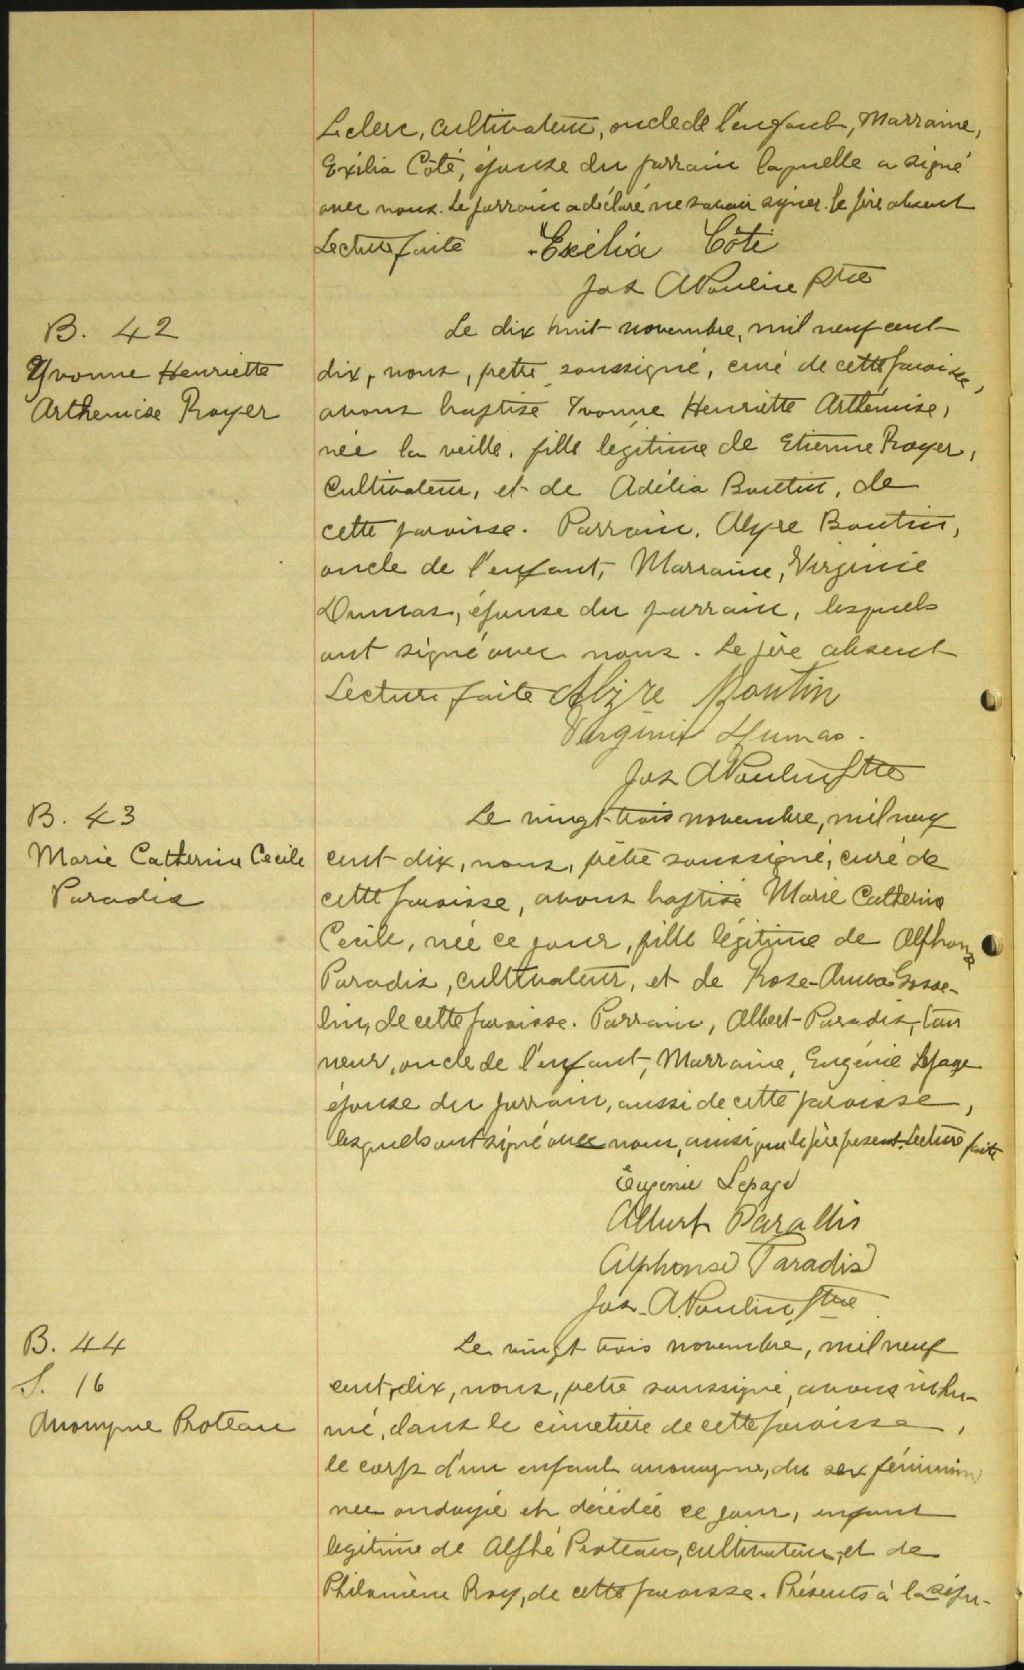 Leclerc, cultivateur, oncle de l'enfant, Marraine,
Exilia Côté, épouse du parrain laquelle a signé
avec nous. Le parrain a déclaré ne savoir signer. Le père absent
Lecture faite Exilia Côté
Jos A Poulin Ptre
B. 42
Yvonne Henriette
Arthemise Royer
Le dix huit novembre, mil neuf cent
dix, nous, prêtre soussigné, curé de cette paroisse,
avons baptisé Yvonne Henriette Arthémise,
née la veille, fille légitime de Etienne Royer,
Cultivateur, et de Adélia Boutin, de
cette paroisse. Parrain, Alyre Boutin,
oncle de l'enfant, Marraine, Virginie
Dumas, épouse du parrain, lesquels
ont signé avec nous. Le père absent
Lecture faite Alyre Boutin
Virginie Dumas.
Jos A Poulin Ptre
B. 43
Marie Catherine Cecile
Paradis
Le vingt-trois novembre, mil neuf
cent dix, nous, prêtre soussigné, curé de
cette paroisse, avons baptisé Marie Catherine
Cecile, née ce jour, fille légitime de Alphonse
Paradis, cultivateur, et de Rose-Anna Gosse-
lin, de cette paroisse. Parrain, Albert Paradis, tan
neur, oncle de l'enfant, Marraine, Eugénie Lepage
épouse du parrain, aussi de cette paroisse,
lesquels ont signé avec nous, ainsi que le père present. Lecture faite
Eugenie Lepage
Albert Paradis
Alphonse Paradis
Jos. A. Poulin Ptre
B. 44
S. 16
Anonyme Proteau
Le vingt trois novembre, mil neuf
cent, dix, nous, prêtre soussigné, avons inhu-
mé, dans le cimetière de cette paroisse,
le corps d'un enfant anonyme, du sex féminin
née ondoyée et décédée ce jour, enfant
legitime de Proteau, cultivateur, et de
Philomène Roy, de cette paroisse. Présents à la sépu-